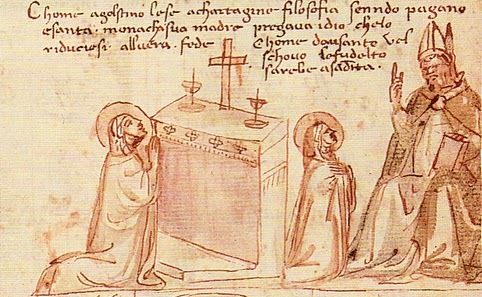 Chome agostino lese achartagine filosofia senndo pagano
esanta · monacha sua madre pregava idio chelo
riduciesi · alluera · fede
Chome dausanto vel
schouo lefudetto
sarebe asadita ·